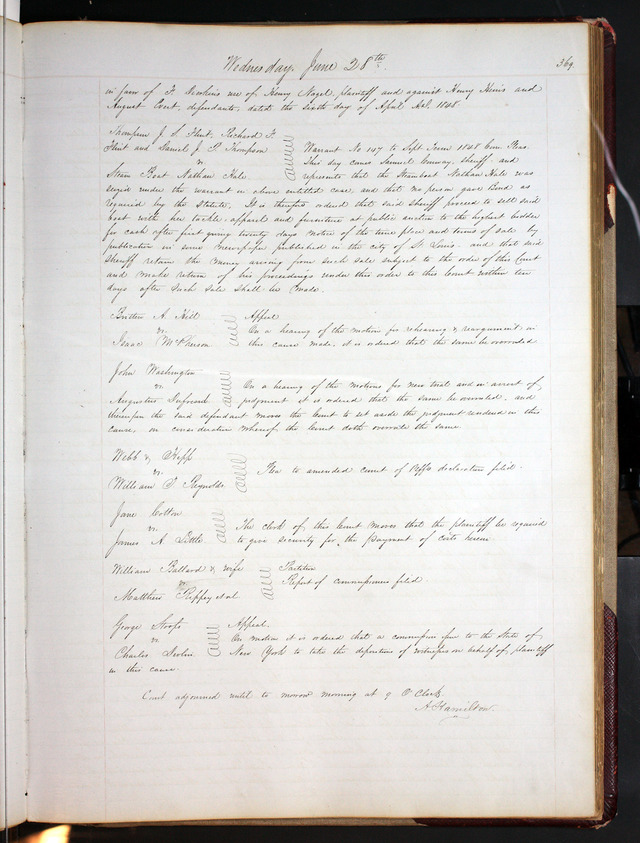 Wednesday, June 28th
369
in favor of F. use of Henry Nagel, plaintiff and against Henry and
August Evert, defendants, dated the sixth day of April A.D. 1848
Thompson J. S. Flint, Richard F.
Flint and Daniel J. P. Thompson
vs
Steam Boat Nathan Hale
Warrant No 147 to Sept Term 1848 Com. Pleas.
This day comes Samuel Conway, sheriff and
represents that the Steamboat Nathan Hale was
seized under the warrant in above entitled case, and that no person gave Bond as
required by the Statute. It is therefore ordered that said Sheriff proceed to sell said
boat with her tackle, apparel and furniture at public auction to the highest bidder
for cash after first giving twenty days notice of the time place and terms of sale by
publication in some newspaper published in the city of St. Louis. and that said
Sheriff return the money arising from such sale subject to the order of this Court
and make return of his proceedings under this order to this Court within ten
days after such sale shall be made.
Britton A. Hill
vs.
Isaac McPherson
Appeal
On a hearing of the motion for rehearing & reargument in
this cause made, it is ordered that the same be overruled
John Washington
vs.
Augustus Dufrend
On a hearing of the motions for new trial and in arrest of
judgment it is ordered that the same be overruled, and
thereupon the said defendant moves the Court to set aside the judgment rendered in this
cause, on consideration whereof the Court doth overrule the same
Webb & Hepp
vs.
William S. Reynolds
Plea to amended count of Plffs declaration filed.
Jane Cotton
vs.
James A. Little
The clerk of this Court moves that the plaintiff be required
to give security for the payment of costs herein
William Ballard & Wife
vs
Matthew Rippey et al
Partition
Report of commissioners filed
George Stoops
vs.
Charles
Appeal.
On motion it is ordered that a commission issue to the State of
New York to take the deposition of witnesses on behalf of plaintiff
in this cause.
Court adjourned until to morrow morning at 9 O'Clock
A. Hamilton.